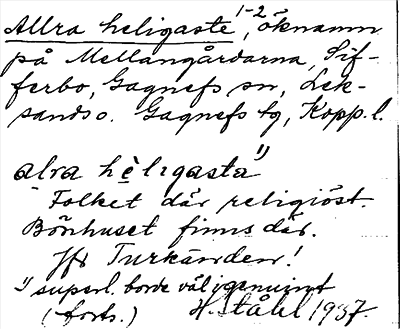 Allra heligaste 1-2, öknamn
på Mellangårdarna, Sif-
ferbo, Gagnefs sn, Lek-
sands o. Gagnefs tg, Kopp. l.
alra hèligasta 1)
Folket där religiöst.
Bönhuset finns där.
Jfr Turkänden!
1) superl. borde väl genuint
(forts.) H. Ståhl 1937.